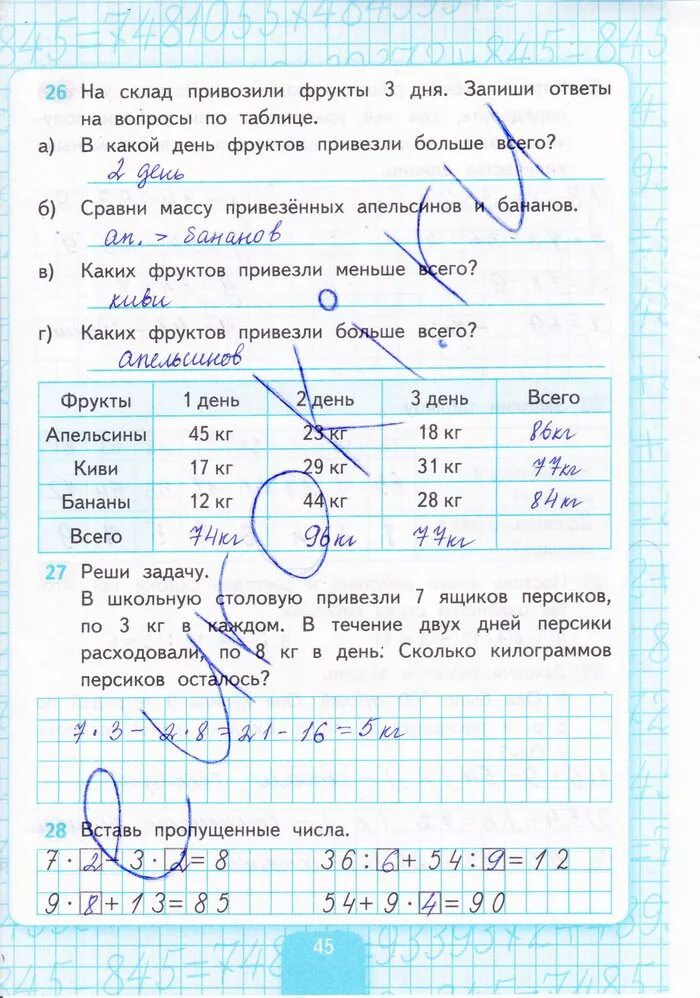 26 На склад привозили фрукты 3 дня. Запиши ответы
на вопросы по таблице.
а) В какой день фруктов привезли больше всего?
2 день
б) Сравни массу привезённых апельсинов и бананов.
ап. > бананов
в) Каких фруктов привезли меньше всего?
киви
г) Каких фруктов привезли больше всего?
апельсинов
Фрукты 1 день 2 день 3 день Всего
Апельсины 45 кг 23 кг 18 кг 86кг
Киви 17 кг 29 кг 31 кг 77кг
Бананы 12 кг 44 кг 28 кг 84кг
Всего 74кг 96кг 77кг
27 Реши задачу.
В школьную столовую привезли 7 ящиков персиков,
по 3 кг в каждом. В течение двух дней персики
расходовали, по 8 кг в день. Сколько килограммов
персиков осталось?
7·3-2·8=21-16=5кг
28 Вставь пропущенные числа.
7·2-3·2=8 36:6+54:9=12
9·8+13=85 54+9·4=90
45